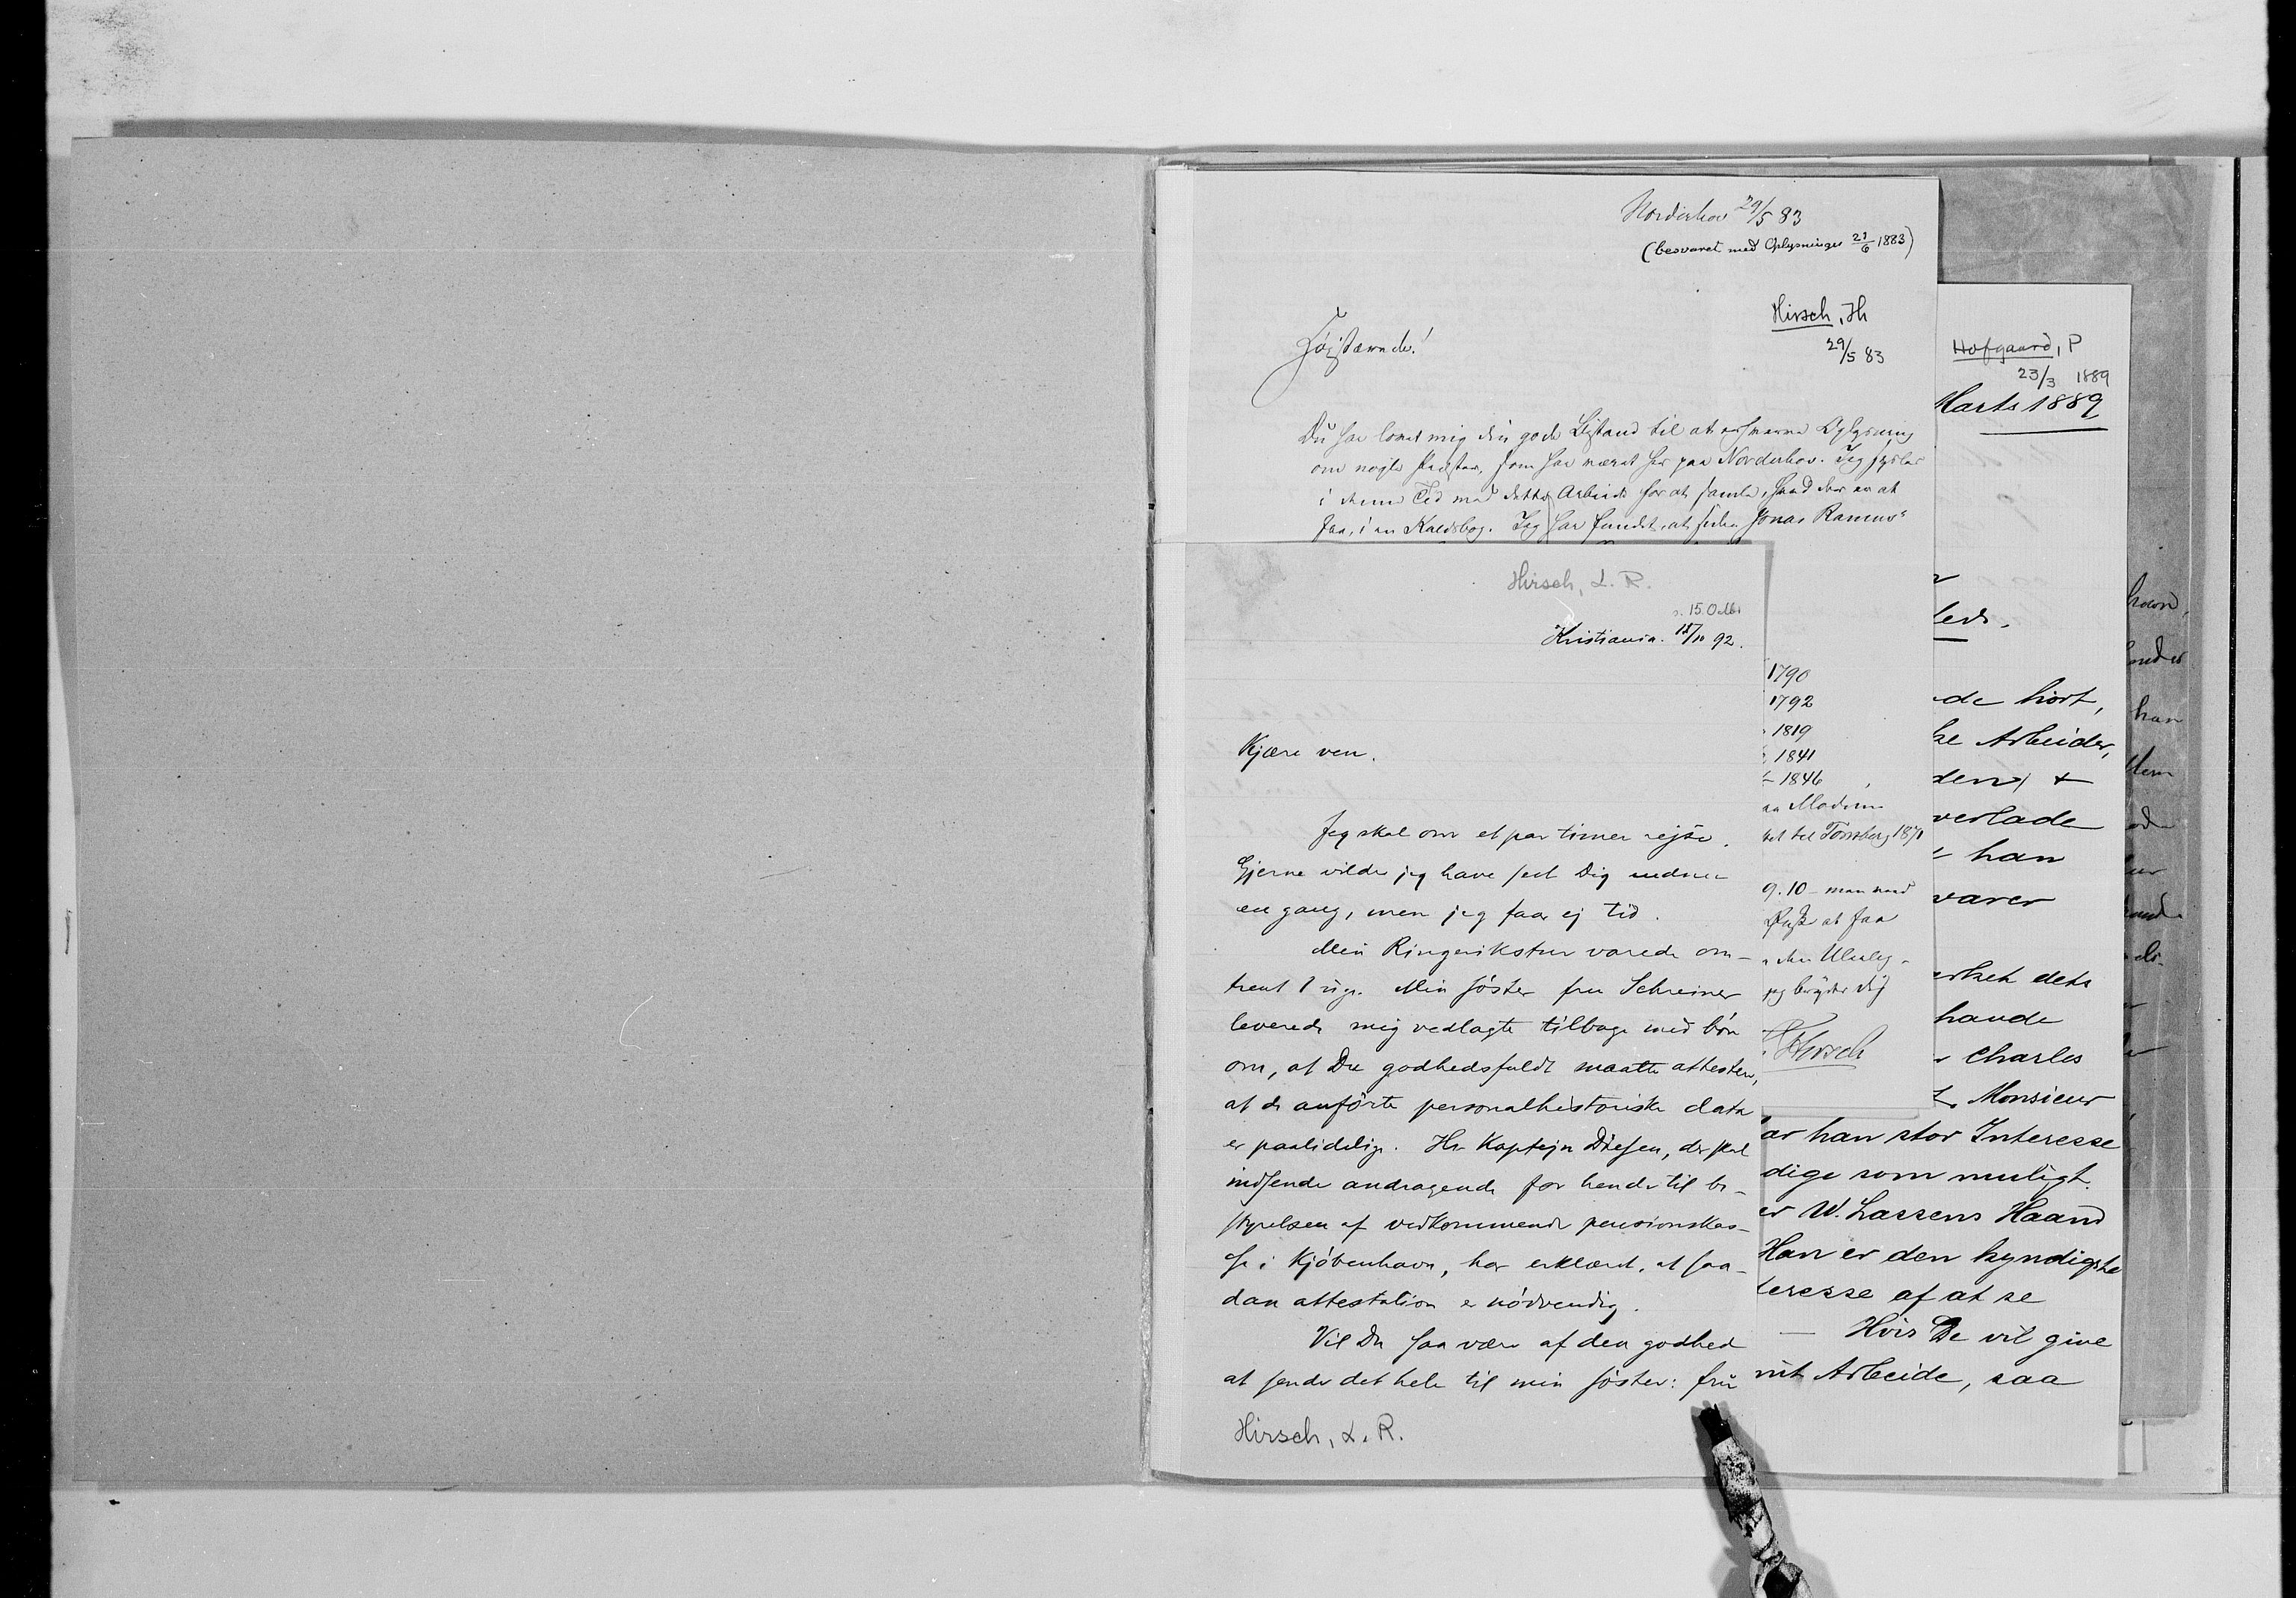 Norderhov 29/5 83
(besvaret med Oplysninger 21/6 1883)
Hirsch, H
29/5 83
Højstærede!
Du har lovet mig din gode Bistand til at erhverve Oplysning
om nogle Præster, som har været her paa Norderhov. Jeg sysler
i denne Tid med dette Arbeide for at samle, hvad der er at
faa, i en Kaldsbog. Jeg har fundet, at siden Jonas Ramus'
1790
1792
1819
1841
1846
Modum
til Tönsberg 1871
9.10 - man
at faa
den Uleilig-
jeg bryder dig
Hirsch
Hofgaard, P
23/3 1889
Marts 1889
leds.
de hört,
ke Arbeider,
den) +
verlade
han
varer
erket dets
havde
Charles
Monsieur
ar han stor Interesse
dige som muligt.
er W. Lassens Haand
Han er den kyndigste
teresse af at se
— Hvis De vil give
mit Arbeide, saa
Hirsch, L. R.
15 Octbr
Kristiania. 15/10 92.
Kjære ven.
Jeg skal om et par timer rejse.
Gjerne vilde jeg have set Dig endnu
en gang, men jeg faar ej tid.
Min Ringerikstur varede om-
trent 1 uge. Min söster fru Schreiner
leverede mig vedlagte tilbage med bön
om, at Du godhedsfuldt maatte attestere,
at de anförte personalhistoriske data
er paalidelige. Hr Kaptejn Diesen, der skal
indsende andragende for hende til be-
styrelsen af vedkommende pensionskas-
se i Kjöbenhavn, har erklæret, at saa-
dan attestation er nödvendig.
Vil Du saa være af den godhed
at sende det hele til min söster: fru
Hirsch, L. R.